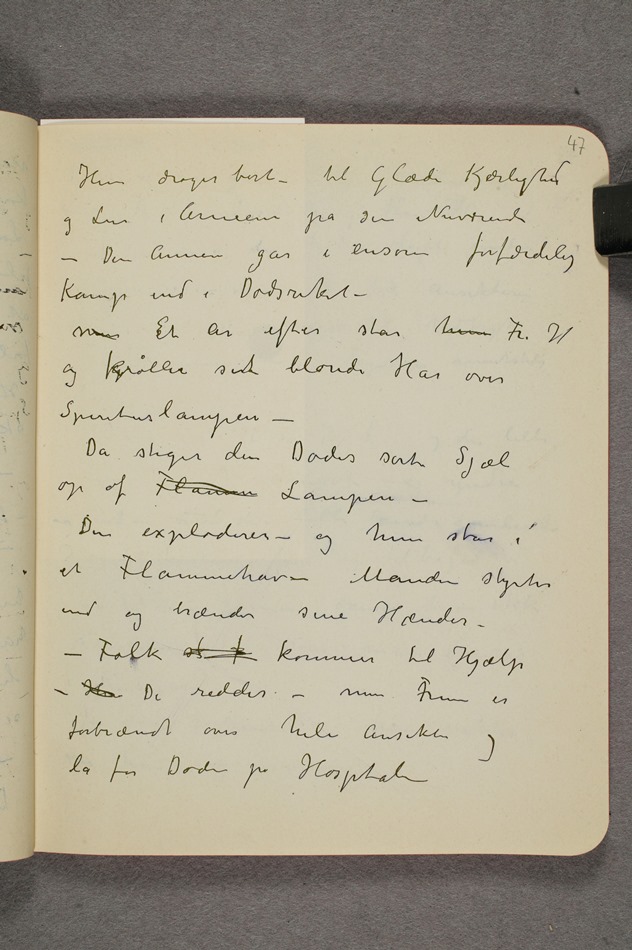 47
Hun drager bort – til Glæde Kjærlighed
og Lur i Armene på sin Nuværende
– Den Annen gar i ensom forfærdelig
Kamp ind i Dødsriket –
men Et Ar efter star hun Fr. H
og krøller sit blonde Har over
Spirituslampen –
Da stiger den Dødes sorte Sjæl
op af Flammen Lampen –
Den exploderer – og hun star i
et Flammehav – Manden styrter
ind og brænder sine Hænder –
– Folk kommer til Hjælp
– De reddes – men Fruen er
forbrændt over hele Ansiktet og
la for Døden på Hospitalet